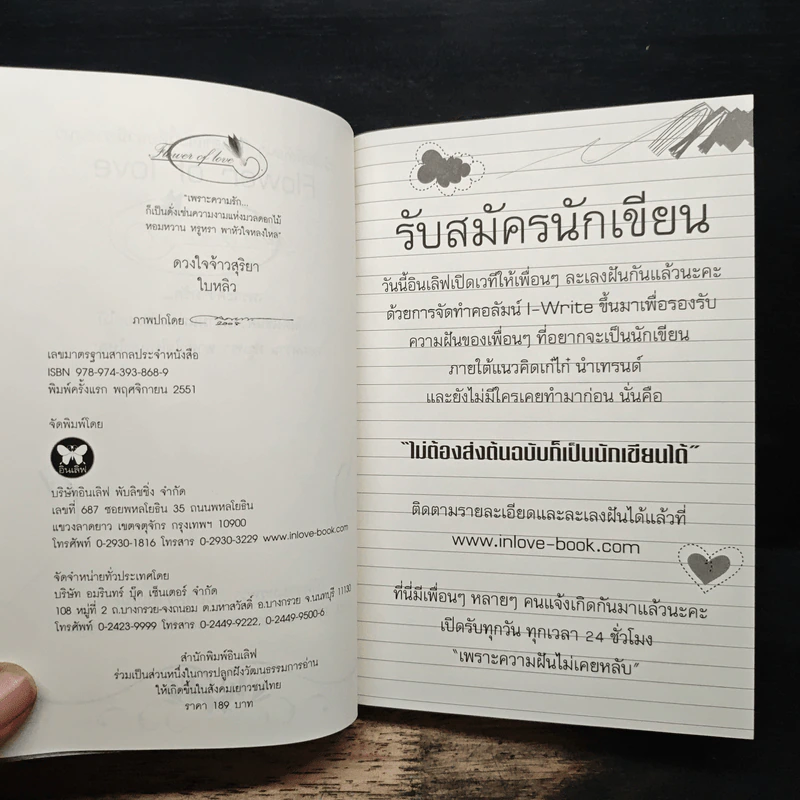 Flower of love
"เพราะความรัก...
ก็เป็นดั่งเช่นความงามแห่งมวลดอกไม้
หอมหวาน หรูหรา พาหัวใจหลงใหล"
ดวงใจจ้าวสุริยา
ใบหลิว
ภาพปกโดย
เลขมาตรฐานสากลประจำหนังสือ
ISBN 978-974-393-868-9
พิมพ์ครั้งแรก พฤศจิกายน 2551
จัดพิมพ์โดย
อินเลิฟ
บริษัทอินเลิฟ พับลิชชิ่ง จำกัด
เลขที่ 687 ซอยพหลโยธิน 35 ถนนพหลโยธิน
แขวงลาดยาว เขตจตุจักร กรุงเทพฯ 10900
โทรศัพท์ 0-2930-1816 โทรสาร 0-2930-3229 www.inlove-book.com
จัดจำหน่ายทั่วประเทศโดย
บริษัท อมรินทร์ บุ๊ค เซ็นเตอร์ จำกัด
108 หมู่ที่ 2 ถ.บางกรวย-จงถนอม ต.มหาสวัสดิ์ อ.บางกรวย จ.นนทบุรี 11130
โทรศัพท์ 0-2423-9999 โทรสาร 0-2449-9222, 0-2449-9500-6
สำนักพิมพ์อินเลิฟ
ร่วมเป็นส่วนหนึ่งในการปลูกฝังวัฒนธรรมการอ่าน
ให้เกิดขึ้นในสังคมเยาวชนไทย
ราคา 189 บาท
รับสมัครนักเขียน
วันนี้อินเลิฟเปิดเวทีให้เพื่อนๆ ละเลงฝันกันแล้วนะคะ
ด้วยการจัดทำคอลัมน์ I-Write ขึ้นมาเพื่อรองรับ
ความฝันของเพื่อนๆ ที่อยากจะเป็นนักเขียน
ภายใต้แนวคิดเก๋ไก๋ นำเทรนด์
และยังไม่มีใครเคยทำมาก่อน นั่นคือ
"ไม่ต้องส่งต้นฉบับก็เป็นนักเขียนได้"
ติดตามรายละเอียดและละเลงฝันได้แล้วที่
www.inlove-book.com
ที่นี่มีเพื่อนๆ หลายๆ คนแจ้งเกิดกันมาแล้วนะคะ
เปิดรับทุกวัน ทุกเวลา 24 ชั่วโมง
"เพราะความฝันไม่เคยหลับ"